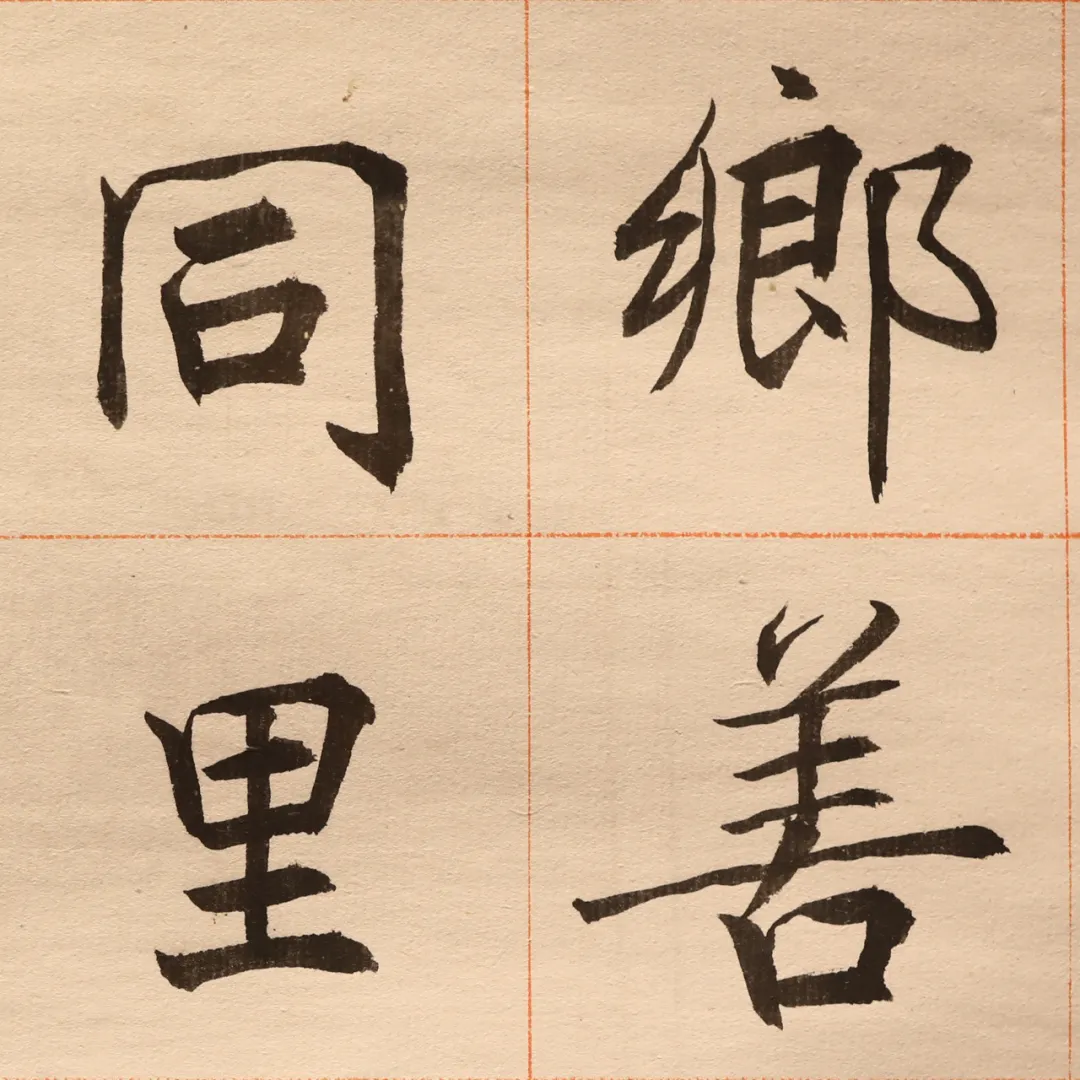 鄉善
同里